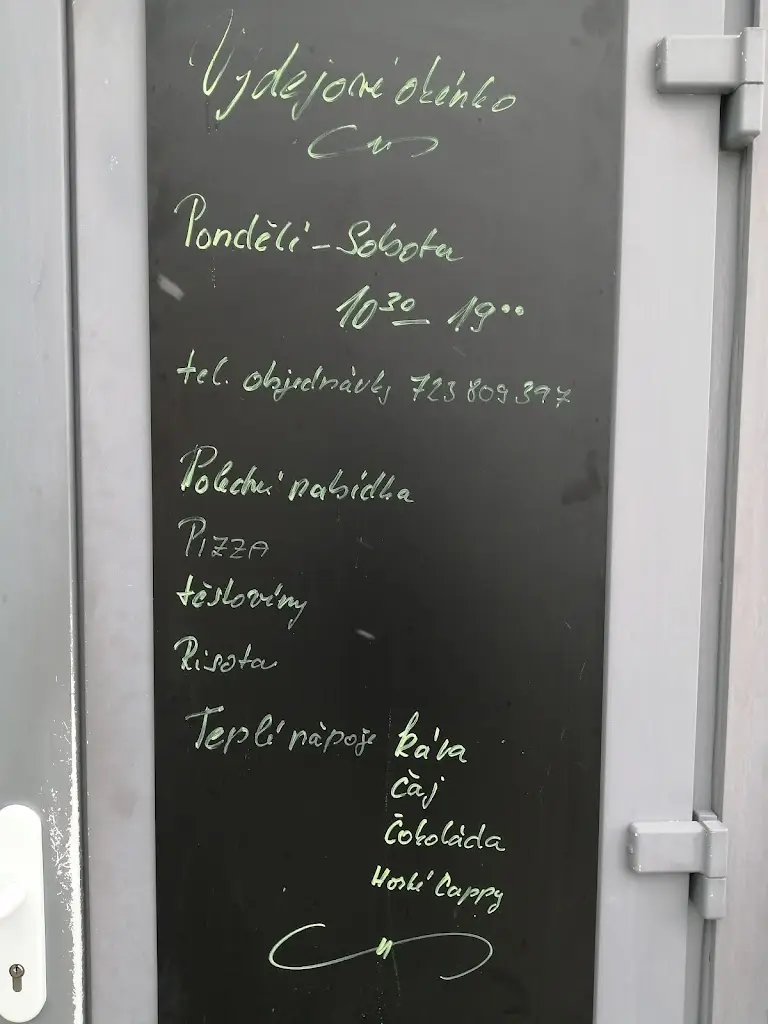 Výdejové okénko
Pondělí - Sobota
10³⁰ - 19⁰⁰
tel. objednávky 723 809 397
Polední nabídka
PIZZA
těstoviny
Risota
Teplé nápoje káva
čaj
čokoláda
Horké Cappy